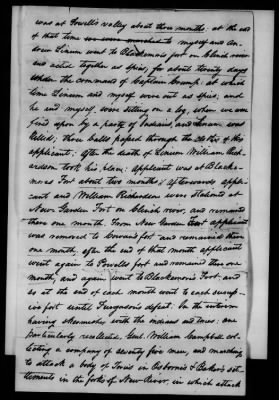 was at Powell's valley about three months, at the end
of that time we were marched to myself and An-
drew Linam went to Blackemores fort on Clinch river
and acted together as spies, for about twenty days
under the command of Captain Camp at which
time Linam and myself were out as spies; and
he and myself, were setting on a log when we were
fired upon by a party of Indians, and Linam was
killed; three balls passed through the clothes of this
applicant; After the death of Linam William Rich-
ardson took his place; Applicant was at Blacke-
mores Fort about two months & afterwards appli-
cant and William Richardson were stationed at
New Garden Fort on Clinch river, and remained
there one month. From New Garden Fort applicant
was removed to fort and remained there
one month, after the end of that month applicant
went again to Powells fort and remained there one
month, and again went to Blackemores Fort, and
so at the end of each month went to each success-
ive fort until Furguson's defeat. In the interim
having skirmishes with the indians and tories, one
particularly recollected, Genl. William Campbell col-
lecting a company of seventy five men, and marching
to attack a body of Tories in Osborne's & Baker's set-
tlements in the forks of New River, in which attack